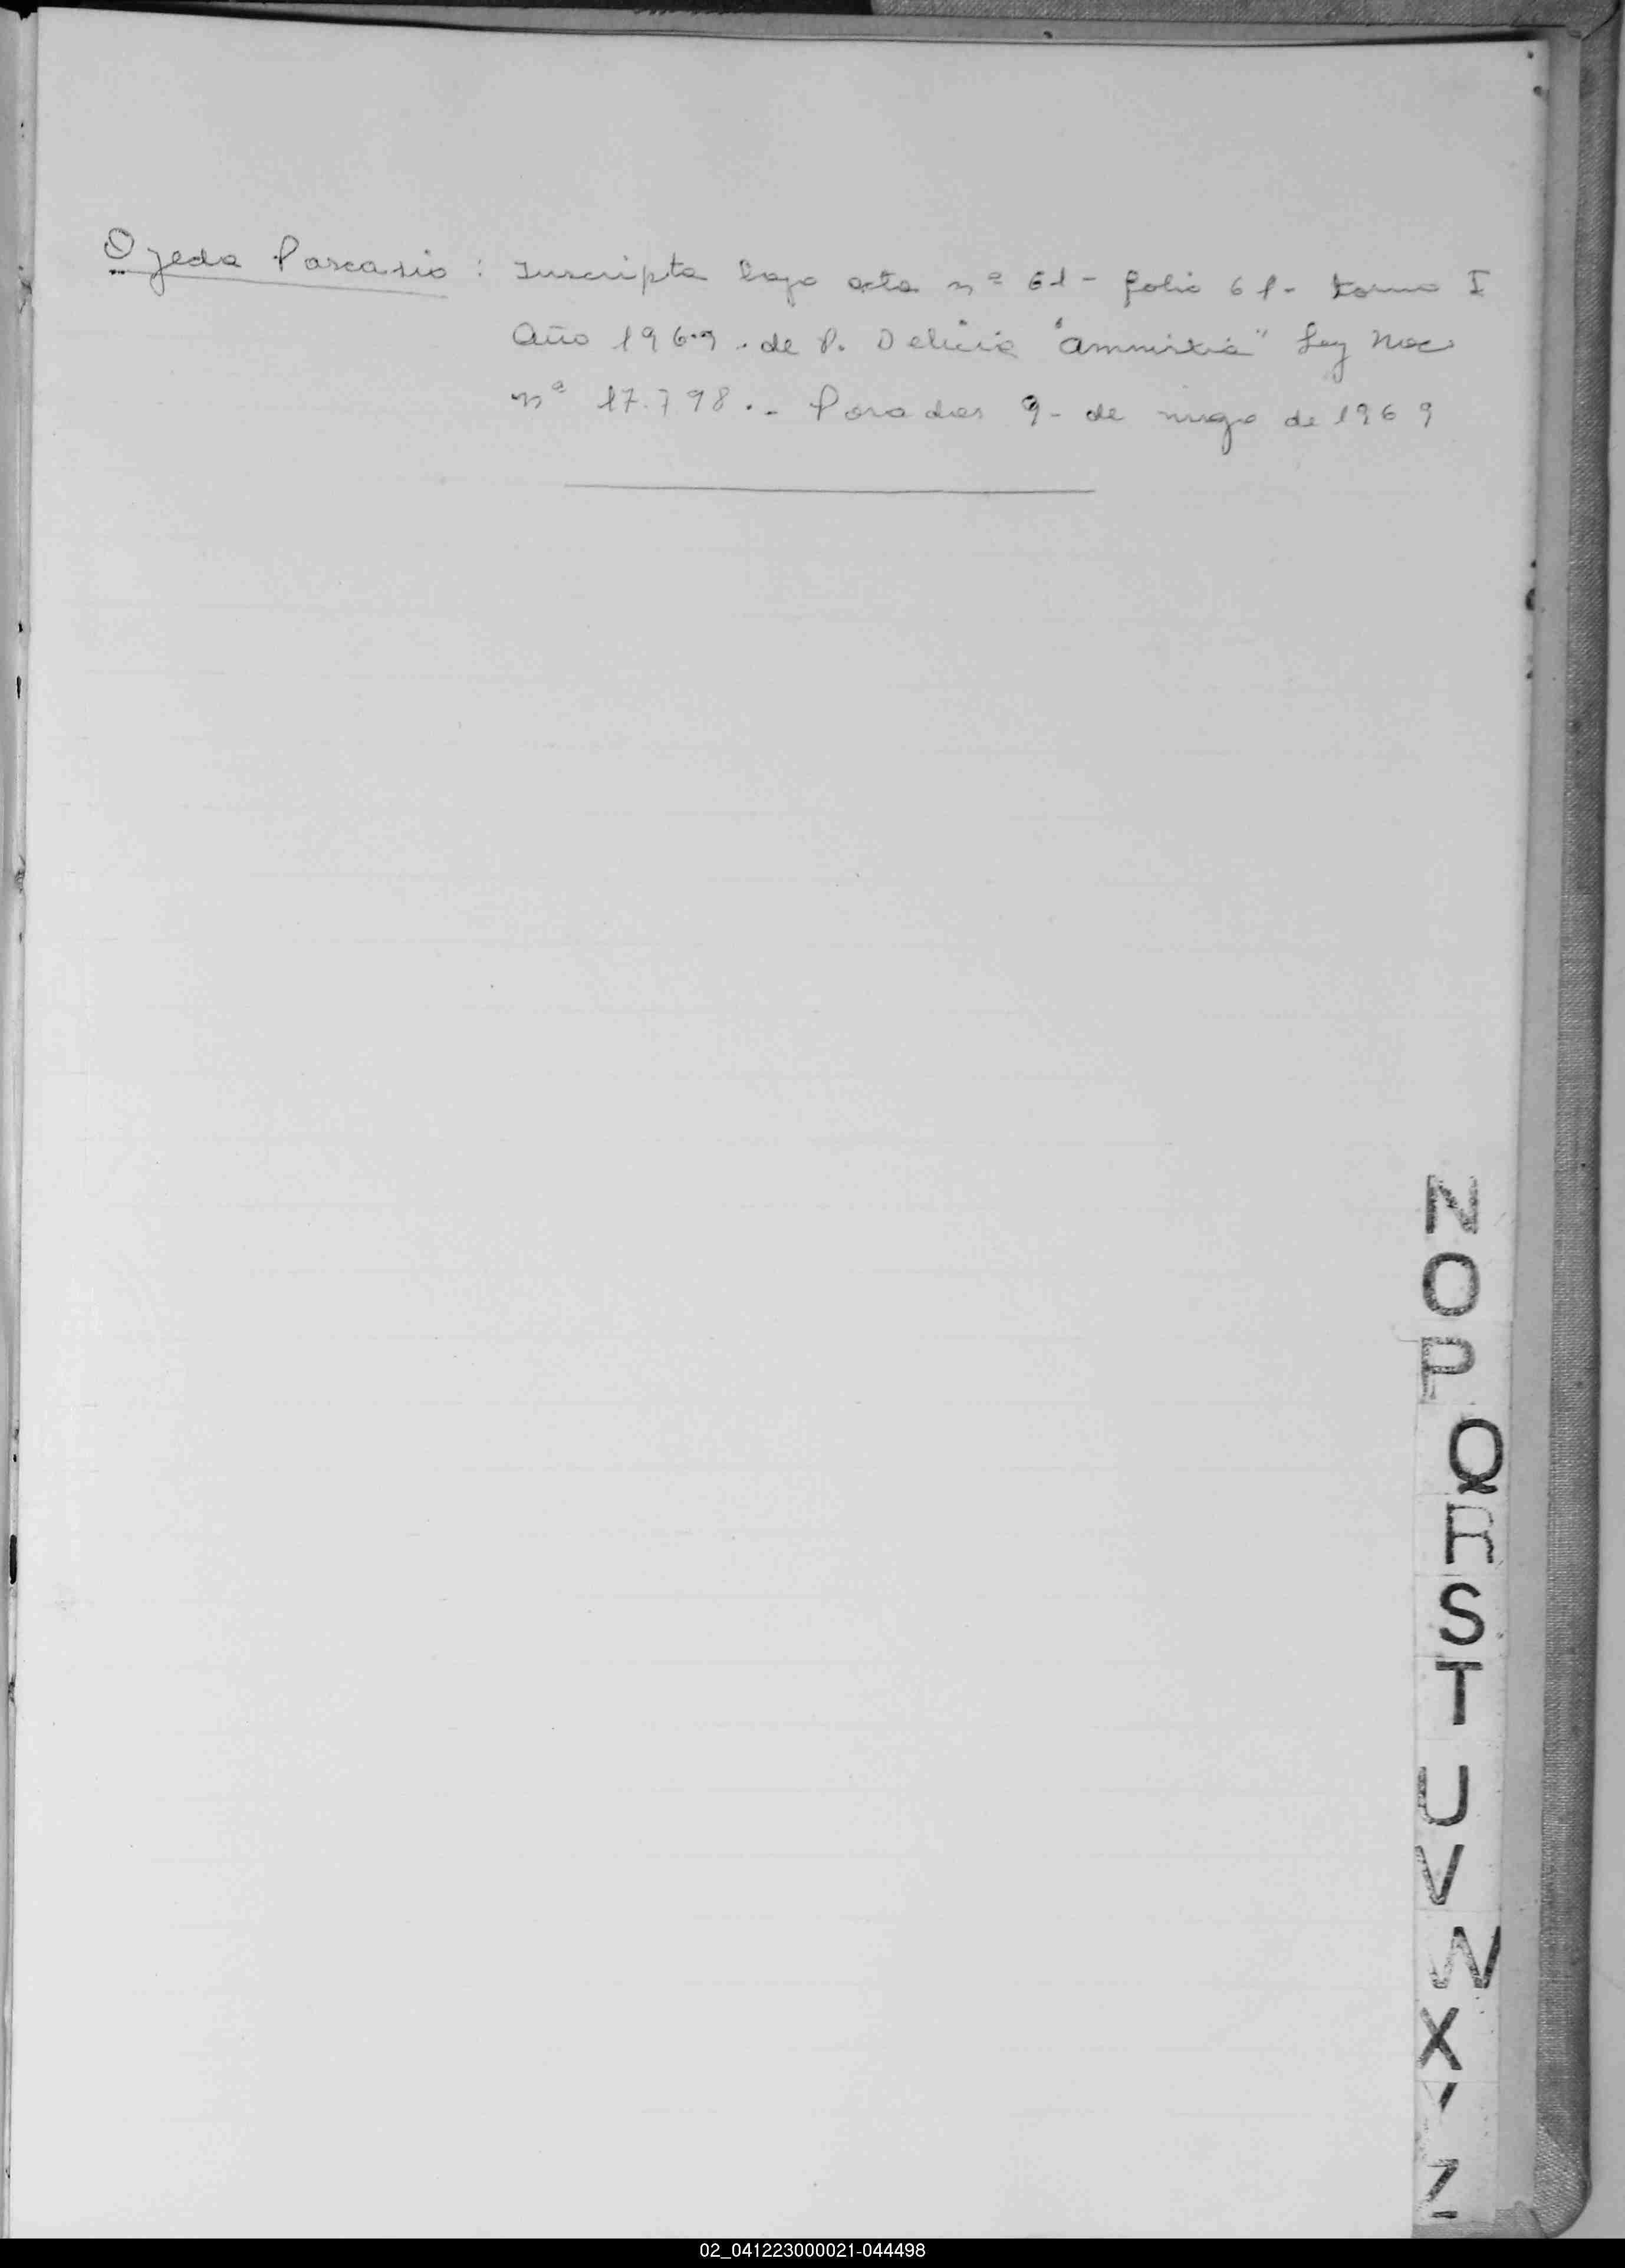 Ojeda Pascasio : Inscripta bajo acta nº 61 - folio 61 - tomo I
Año 1969 . de P. Delicia "amnistia" Ley Nac
nº 17.798 . - Posadas 9 - de mayo de 1969
N
O
P
Q
R
S
T
U
V
W
X
Y
Z
02_041223000021-044498